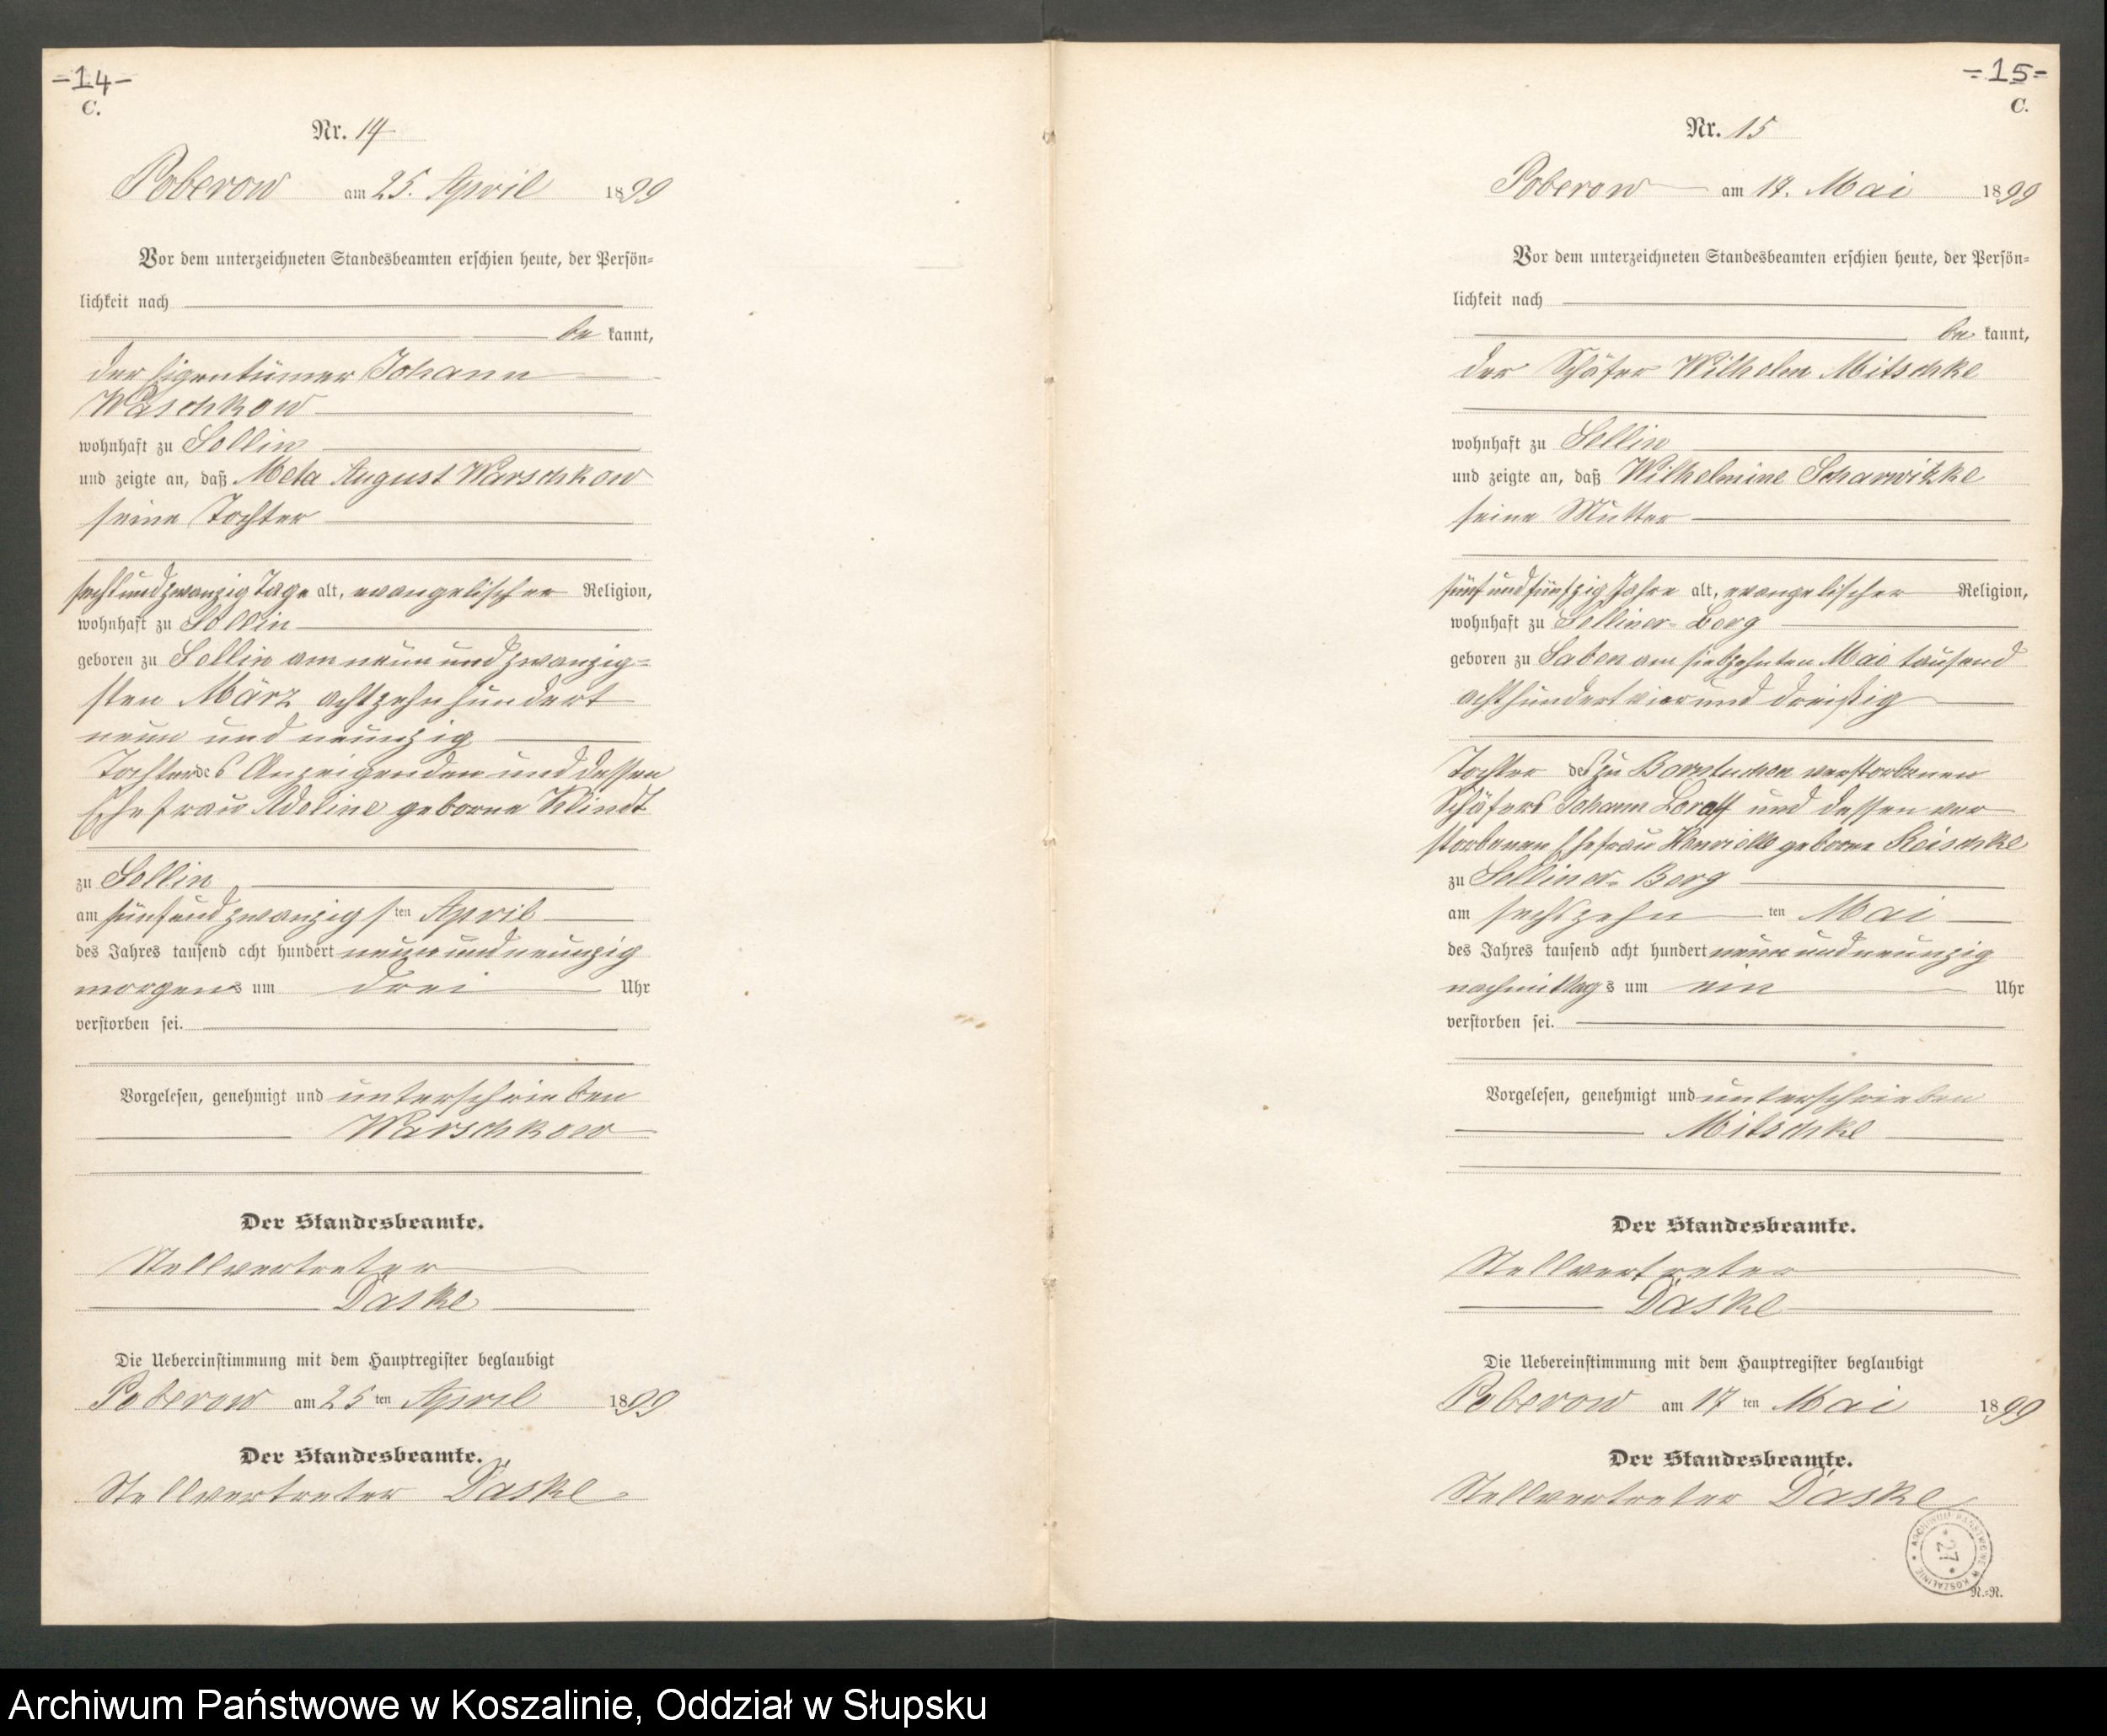 =14=
C.
Nr. 14
Poberow am 25. April 1899
Vor dem unterzeichneten Standesbeamten erschien heute, der Persön=
lichkeit nach
be kannt,
der Eigentümer Johann
Waschkow
wohnhaft zu Sellin
und zeigte an, daß Meta August Warschkow
seine Tochter
sechsundzwanzig Tage alt, evangelischer Religion,
wohnhaft zu Sellin
geboren zu Sellin am neun und zwanzig=
sten März achtzehnhundert
neun und neunzig
Tochter des Anzeigenden und dessen
Ehefrau Adeline geborne Klindt
zu Sellin
am fünfundzwanzigsten April
des Jahres tausend acht hundert neun und neunzig
morgens um drei Uhr
verstorben sei.
Vorgelesen, genehmigt und unterschrieben
Warschkow
Der Standesbeamte.
Stellvertreter
Daske
Die Uebereinstimmung mit dem Hauptregister beglaubigt
Poberow am 25 ten April 1899
Der Standesbeamte.
Stellvertreter Daske
=15=
C.
Nr. 15
Poberow am 17. Mai 1899
Vor dem unterzeichneten Standesbeamten erschien heute, der Persön=
lichkeit nach
be kannt,
der Schäfer Wilhelm Mitschke
wohnhaft zu Sellin
und zeigte an, daß Wilhelmine Scharwitzke
seine Mutter
fünf und fünfzig Jahre alt, evangelischer Religion,
wohnhaft zu Selliner=Berg
geboren zu Saben am siebzehnten Mai tausend
achthundert vier und dreißig
Tochter des zu Borntuchen verstorbenen
Schäfers Johann und dessen ver
storbenen Ehefrau Henriette geborne Reischke
zu Selliner=Berg
am sechszehn ten Mai
des Jahres tausend acht hundert neun und neunzig
nachmittags um ein Uhr
verstorben sei.
Vorgelesen, genehmigt und unterschrieben
Mitschke
Der Standesbeamte.
Stellvertreter
Daske
Die Uebereinstimmung mit dem Hauptregister beglaubigt
Poberow am 17 ten Mai 1899
Der Standesbeamte.
Stellvertreter Daske
ARCHIWUM PAŃSTWOWE W KOSZALINIE
27
N.=N.
Archiwum Państwowe w Koszalinie, Oddział w Słupsku